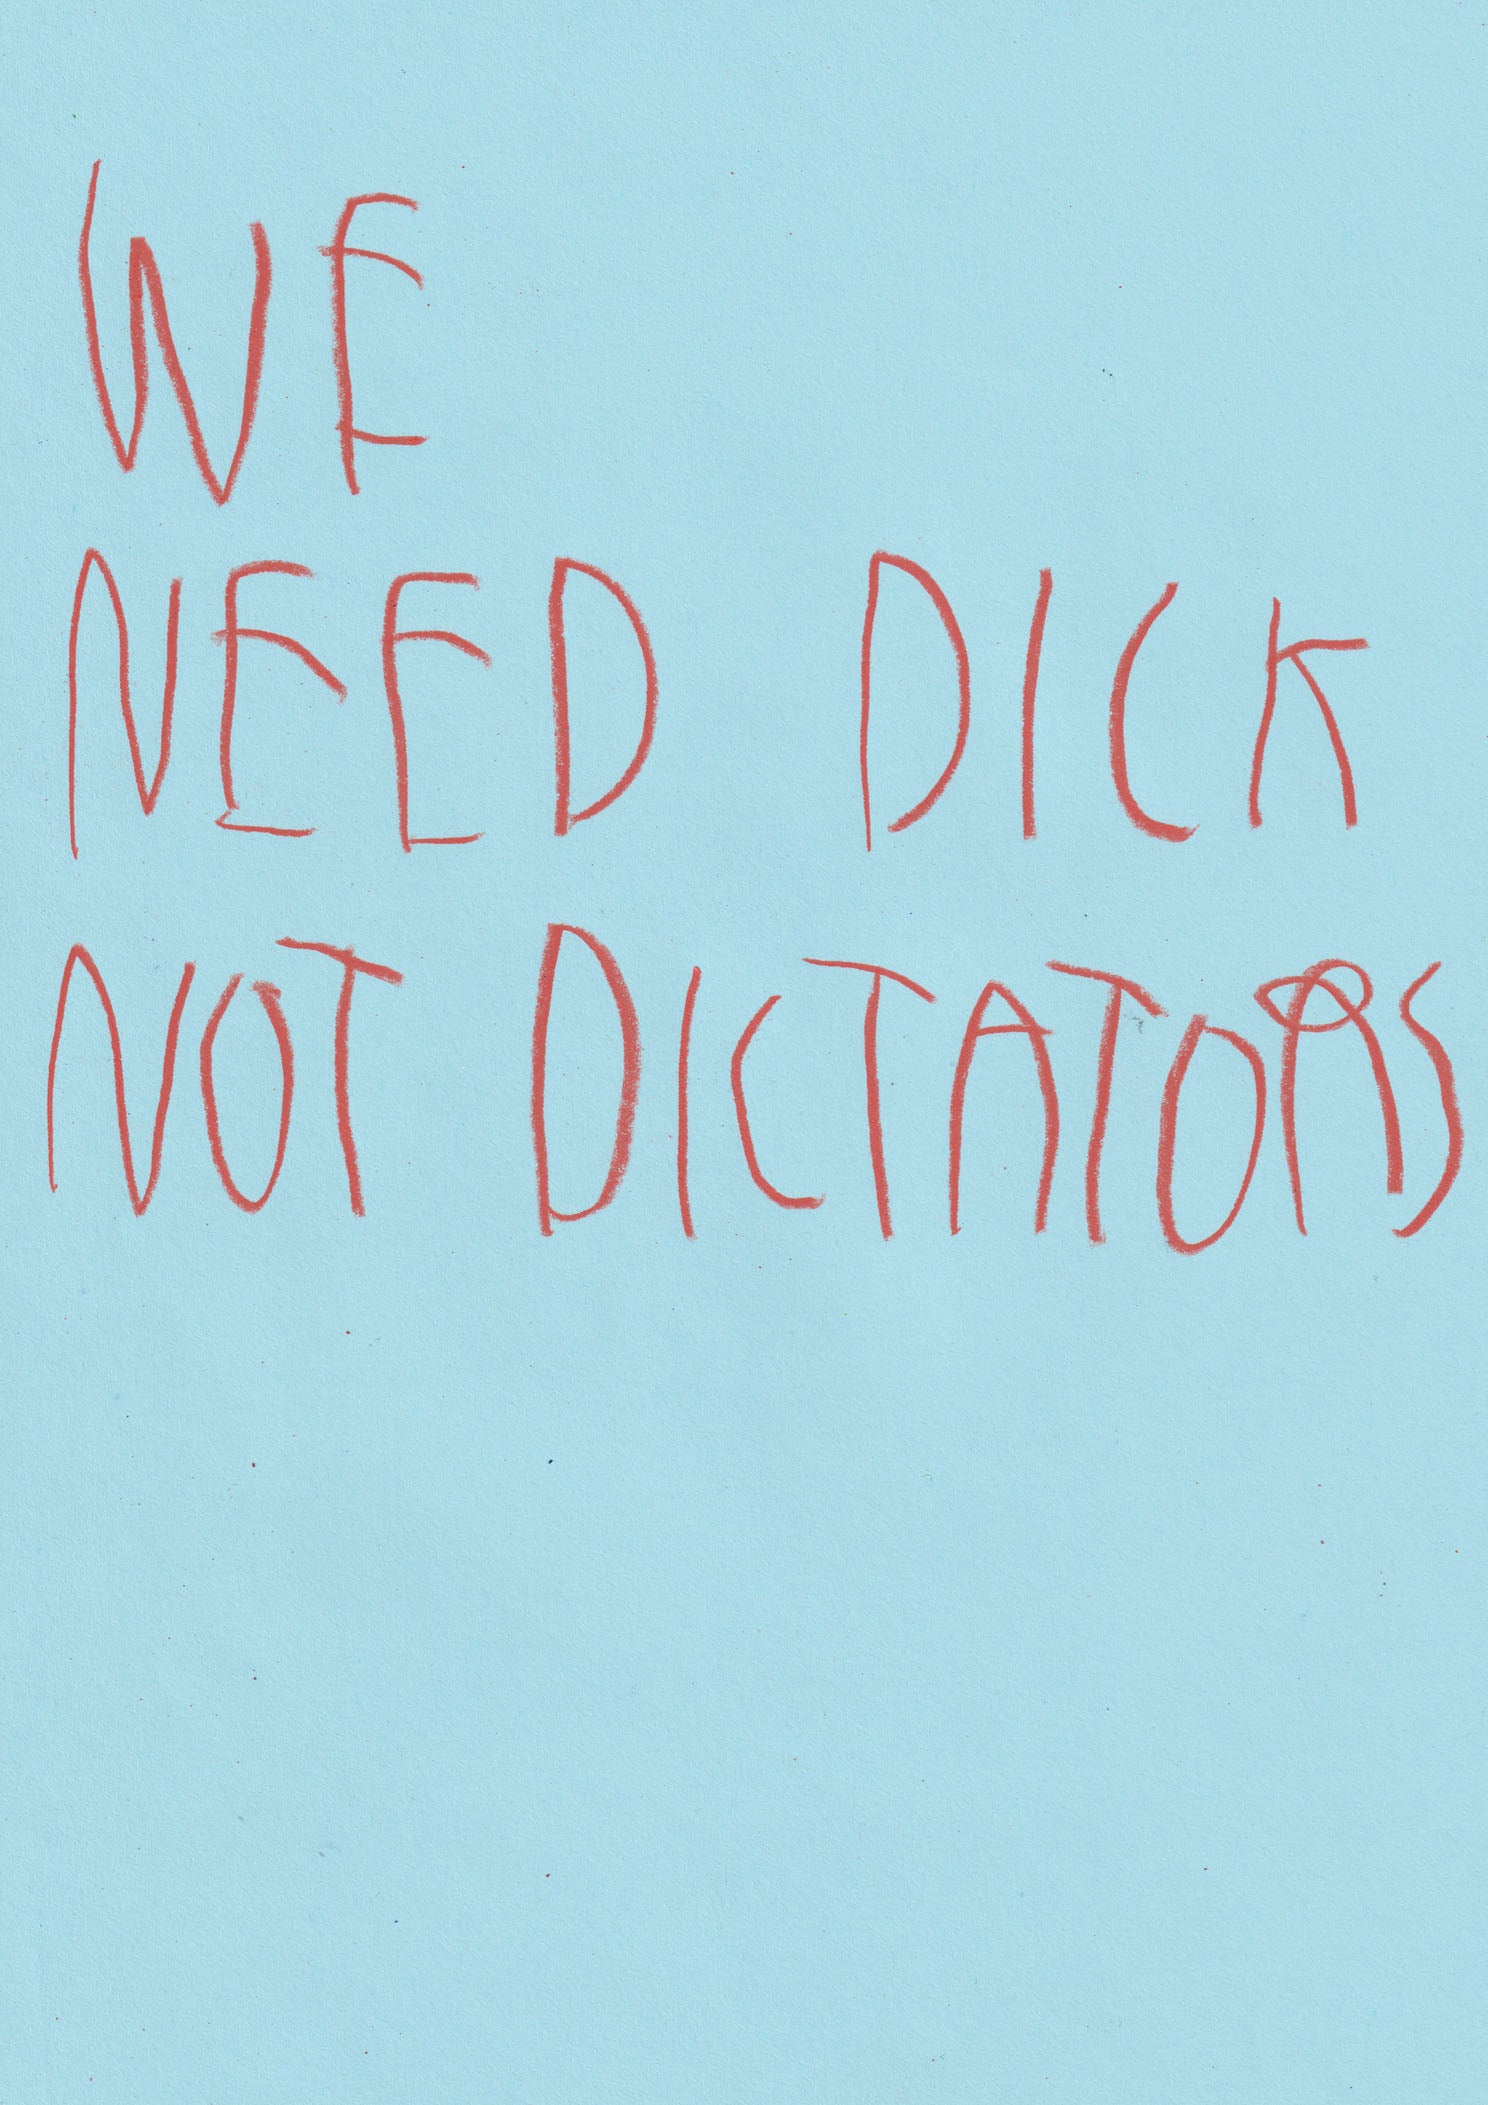 WE
NEED DICK
NOT DICTATORS